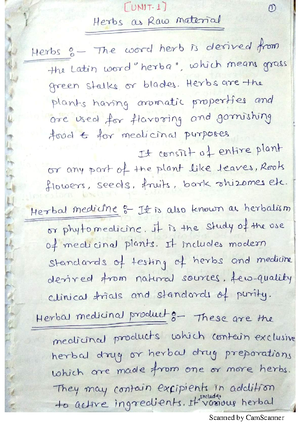 [UNIT-1]
①
Herbs as Raw material
Herbs :- The word herb is derived from
the Latin word "herba", which means grass
green stalks or blades. Herbs are the
plants having aromatic properties and
are used for flavoring and garnishing
food & for medicinal purposes
It consist of entire plant
or any part of the plant like leaves, Roots
flowers, seeds, fruits, bark rhizomes etc.
Herbal medicine :- It is also known as herbalism
or phytomedicine. it is the study of the use
of medicinal plants. It includes modern
standards of testing of herbs and medicine
derived from natural sources, few-quality
clinical trials and standards of purity.
Herbal medicinal product :- These are the
medicinal products which contain exclusive
herbal drug or herbal drug preparations
which are made from one or more herbs.
They may contain excipients in addition
to active ingredients. It includes various herbal
Scanned by CamScanner